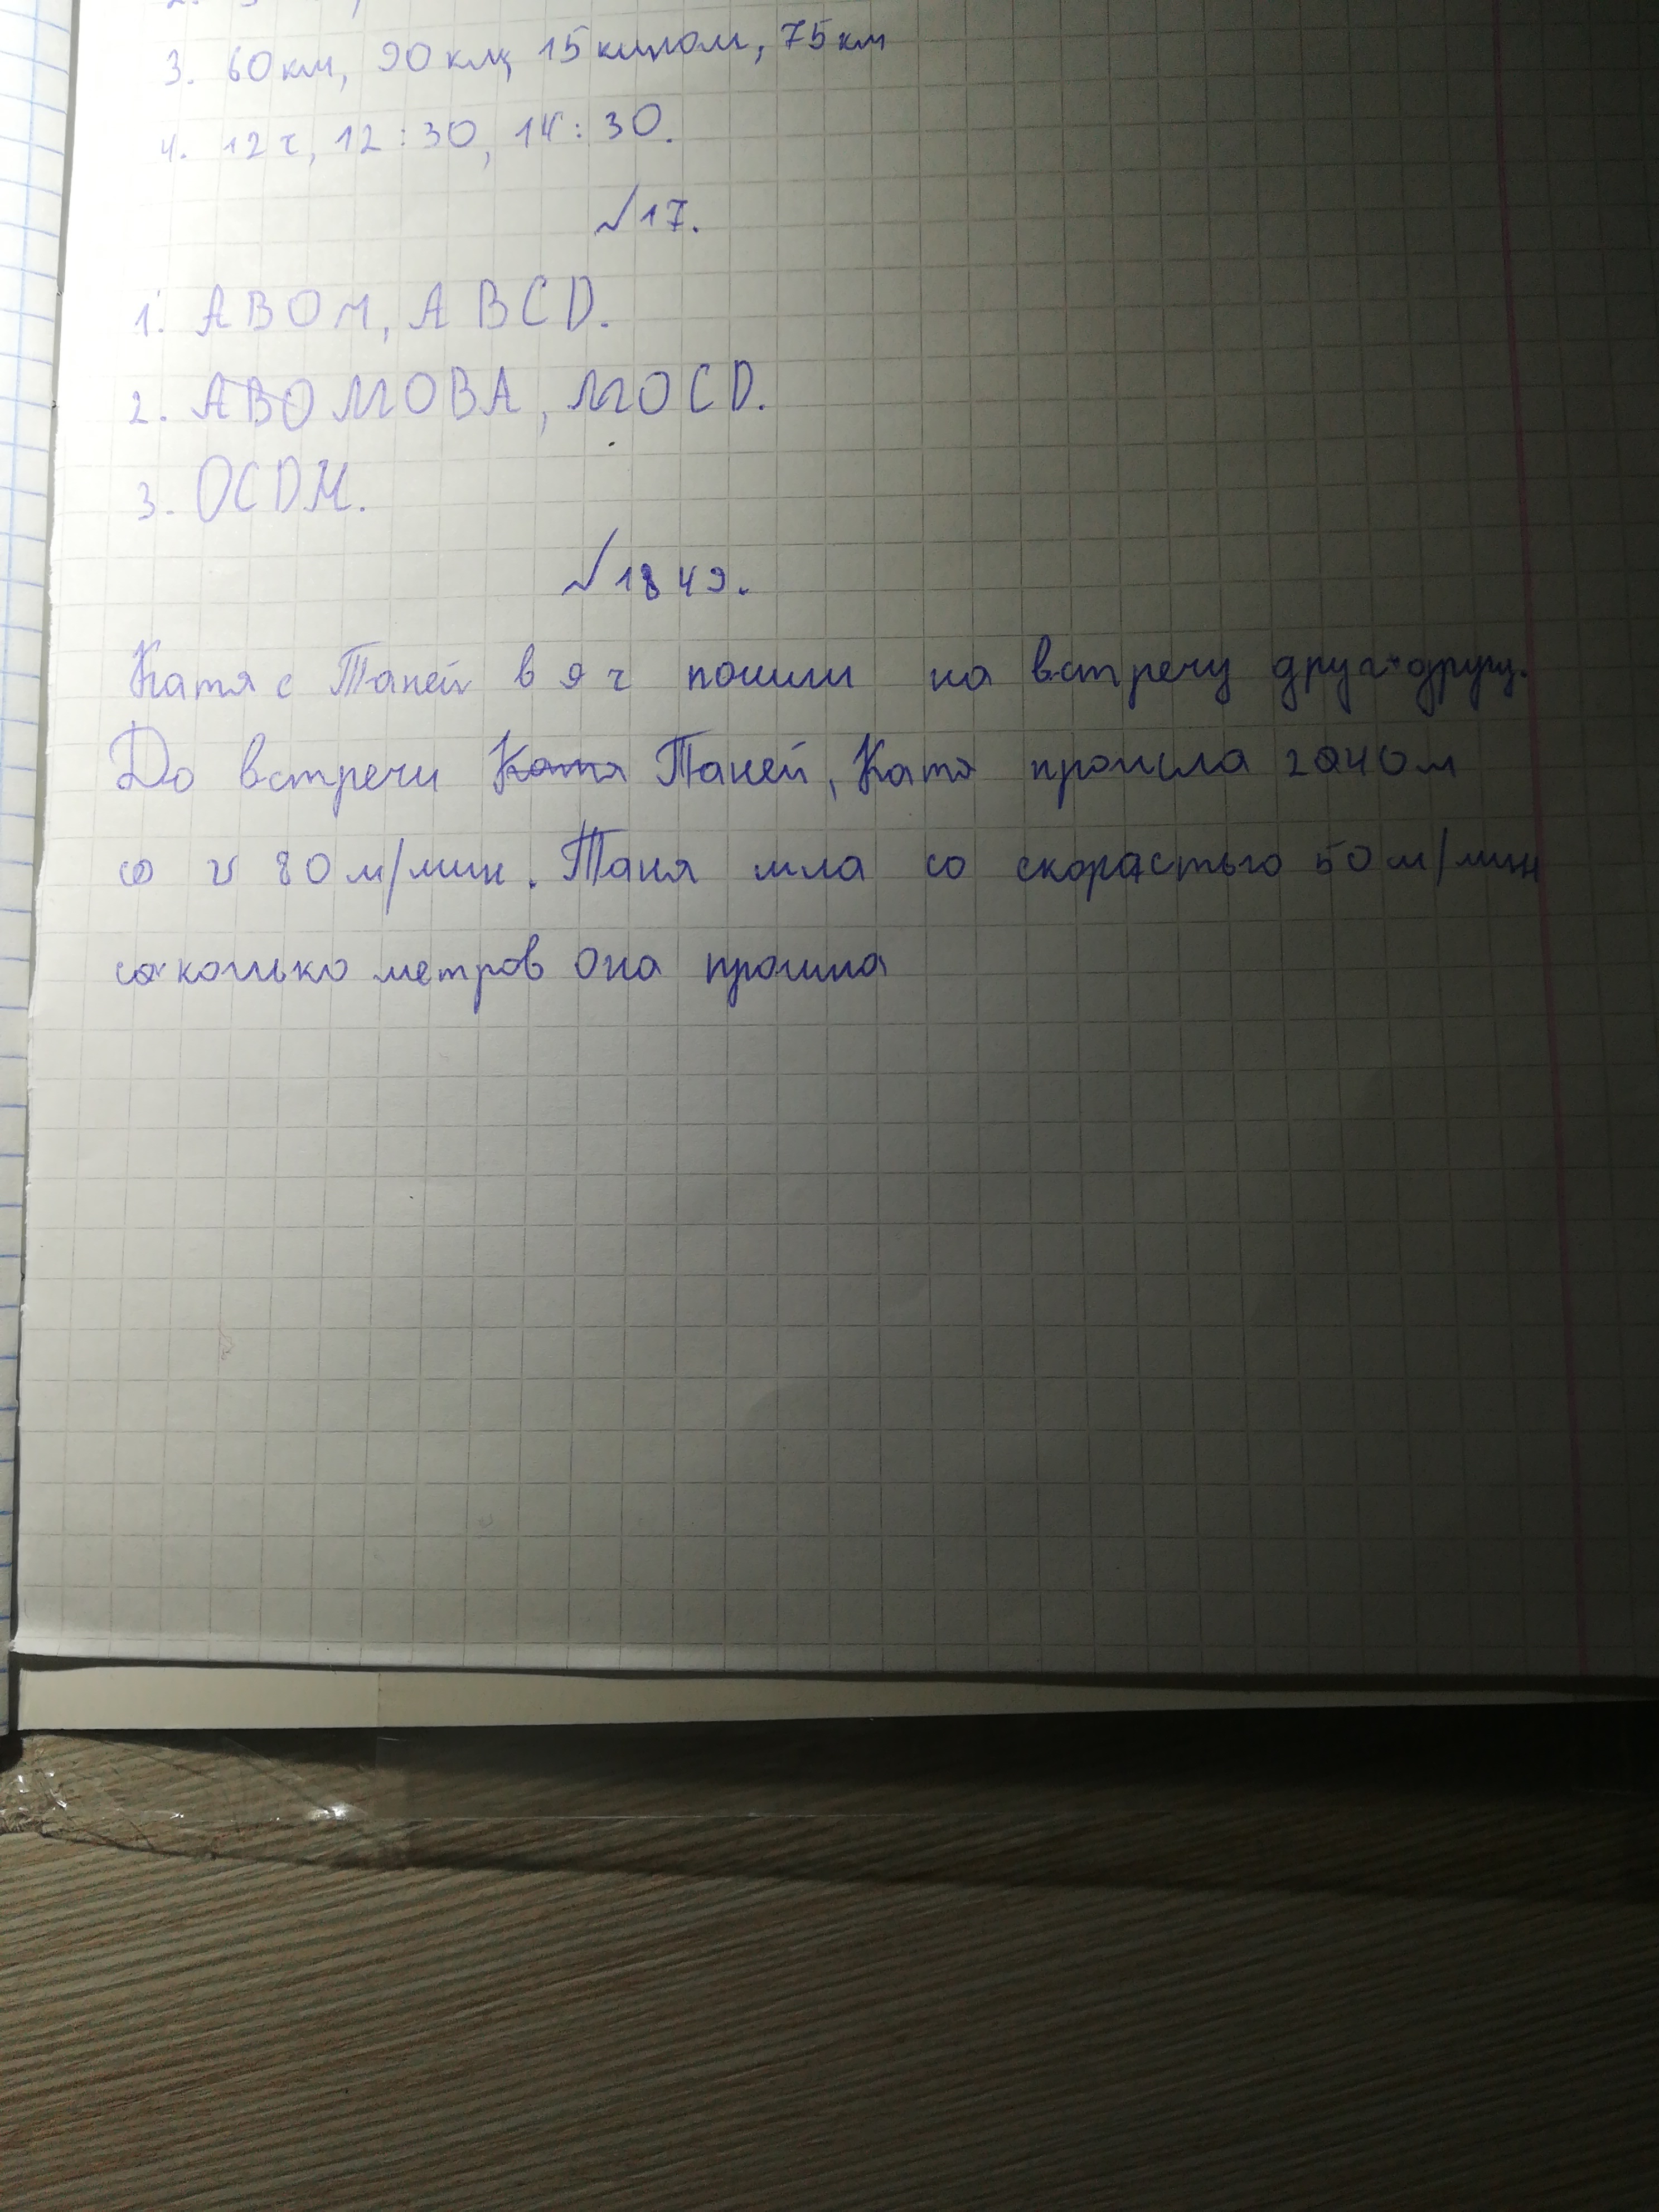 3. 60 км, 90 км, 15 килом, 75 км
4. 12 ч, 12:30, 14:30.
№17.
1. АВОМ, ABCD.
2. АВОМОВА, МОCD.
3. OCDM.
№1849.
Катя с Таней в 9 ч пошли на встречу друг другу.
До встречи Катя Таней, Катя прошла 2240 м
со v 80 м/мин. Таня шла со скорастью 50 м/мин
сколько метров она прошла